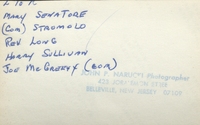 L to R
MARY SENATORE
(COM) STROMOLO
REV LONG
HARRY SULLIVAN
JOE McGREEVY (COM)
JOHN P. Photographer
BELLEVILLE, NEW JERSEY